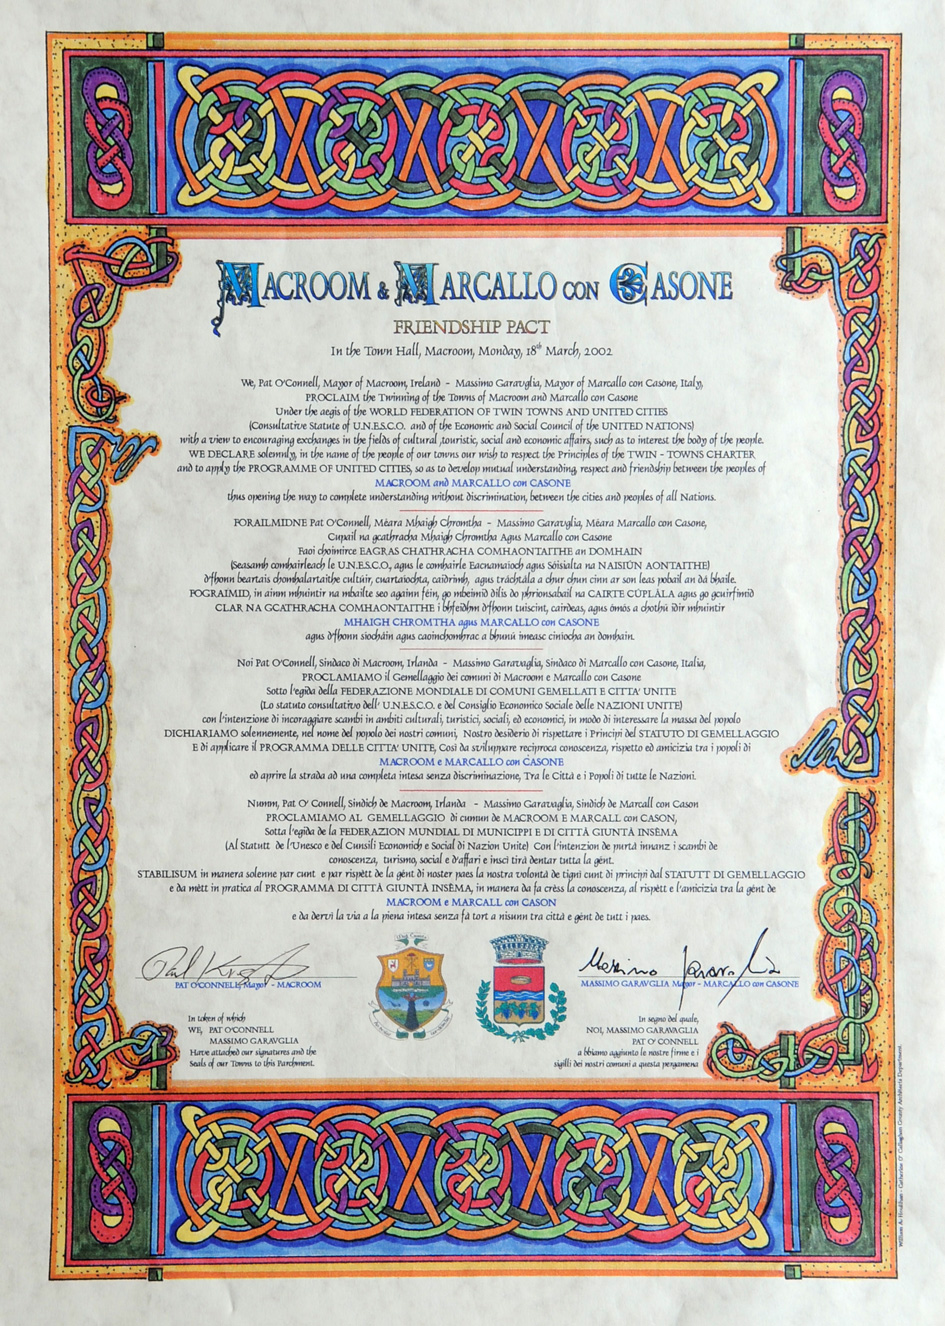 MACROOM & MARCALLO CON CASONE
FRIENDSHIP PACT
In the Town Hall, Macroom, Monday, 18th March, 2002
We, Pat O'Connell, Mayor of Macroom, Ireland - Massimo Garavglia, Mayor of Marcallo con Casone, Italy,
PROCLAIM the Twinning of the Towns of Macroom and Marcallo con Casone
Under the aegis of the WORLD FEDERATION OF TWIN TOWNS AND UNITED CITIES
(Consultative Statute of U.N.E.S.C.O. and of the Economic and Social Council of the UNITED NATIONS)
with a view to encouraging exchanges in the fields of cultural ,touristic, social and economic affairs, such as to interest the body of the people.
WE DECLARE solemnly, in the name of the people of our towns our wish to respect the Principles of the TWIN - TOWNS CHARTER
and to apply the PROGRAMME OF UNITED CITIES, so as to develop mutual understanding, respect and friendship between the peoples of
MACROOM and MARCALLO con CASONE
thus opening the way to complete understanding without discrimination, between the cities and peoples of all Nations.
FORAILMIDNE Pat O'Connell, Méara Mhaigh Chromtha - Massimo Garavglia, Méara Marcallo con Casone,
Cupail na gcathracha Mhaigh Chromtha Agus Marcallo con Casone
Faoi choimirce EAGRAS CHATHRACHA COMHAONTAITHE an DOMHAIN
(Seasamh comhairleach le U.N.E.S.C.O., agus le comhairle Eacnamaioch agus Sóisialta na NAISIÚN AONTAITHE)
d'fhonn beartais chomhalartaithe cultúir, cuartaiochta, caidrimh, agus tráchtála a chur chun cinn ar son leas pobail an dá bhaile.
FOGRAIMID, in ainm mhuintir na mbailte seo againn féin, go mbeimid dílis do phrionsabail na CAIRTE CÚPLÁLA agus go gcuirfimid
CLAR NA GCATHRACHA COMHAONTAITHE i bhfeidhm d'fhonn tuiscint, cairdeas, agus ómós a chothú idir mhuintir
MHAIGH CHROMTHA agus MARCALLO con CASONE
agus d'fhonn siocháin agus caoinchomhrac a bhunú imeasc ciníocha an domhain.
Noi Pat O'Connell, Sindaco di Macroom, Irlanda - Massimo Garavglia, Sindaco di Marcallo con Casone, Italia,
PROCLAMIAMO il Gemellaggio dei comuni di Macroom e Marcallo con Casone
Sotto l'egida della FEDERAZIONE MONDIALE DI COMUNI GEMELLATI E CITTA' UNITE
(Lo statuto consultativo dell' U.N.E.S.C.O. e del Consiglio Economico Sociale delle NAZIONI UNITE)
con l'intenzione di incoraggiare scambi in ambiti culturali, turistici, sociali, ed economici, in modo di interessare la massa del popolo
DICHIARIAMO solennemente, nel nome del popolo dei nostri comuni, Nostro desiderio di rispettare i Principi del STATUTO DI GEMELLAGGIO
E di applicare il PROGRAMMA DELLE CITTA' UNITE, Così da sviluppare reciproca conoscenza, rispetto ed amicizia tra i popoli di
MACROOM e MARCALLO con CASONE
ed aprire la strada ad una completa intesa senza discriminazione, Tra le Città e i Popoli di tutte le Nazioni.
Numm, Pat O' Connell, Sindich de Macroom, Irlanda - Massimo Garavglia, Sindich de Marcall con Cason
PROCLAMIAMO AL GEMELLAGGIO di cumun de MACROOM E MARCALL con CASON,
Sotta l'egida de la FEDERAZION MUNDIAL DI MUNICIPPI E DI CITTÀ GIUNTÀ INSÈMA,
(Al Statutt de l'Unesco e del Cunsili Economich e Social di Nazion Unite) Con l'intenzion de purtà innanz i scambi de
conoscenza, turismo, social e d'affari e insci tirà dentar tutta la gent.
STABILISUM in manera solenne par cunt e par rispètt de la gènt di noster paes la nostra volontà de tigni cunt di principi dal STATUTT DI GEMELLAGGIO
e da mètt in pratica al PROGRAMMA DI CITTÀ GIUNTÀ INSÈMA, in manera da fa crèss la conoscenza, al rispètt e l'amicizia tra la gènt de
MACROOM e MARCALL con CASON
e da dervì la via a la piena intesa senza fà tort a nisunn tra città e gènt de tutt i paes.
Massimo Garavglia
PAT O'CONNELL Mayor - MACROOM
MASSIMO GARAVGLIA Mayor - MARCALLO con CASONE
In token of which
WE, PAT O'CONNELL
MASSIMO GARAVGLIA
Have attached our signatures and the
Seals of our Towns to this Parchment.
In segno del quale,
NOI, MASSIMO GARAVGLIA
PAT O' CONNELL
a bbiamo aggiunto le nostre firme e i
sigilli dei nostri comuni a questa pergamena
William A. Houlihan - Catherine O' Callaghan County Architects Department.